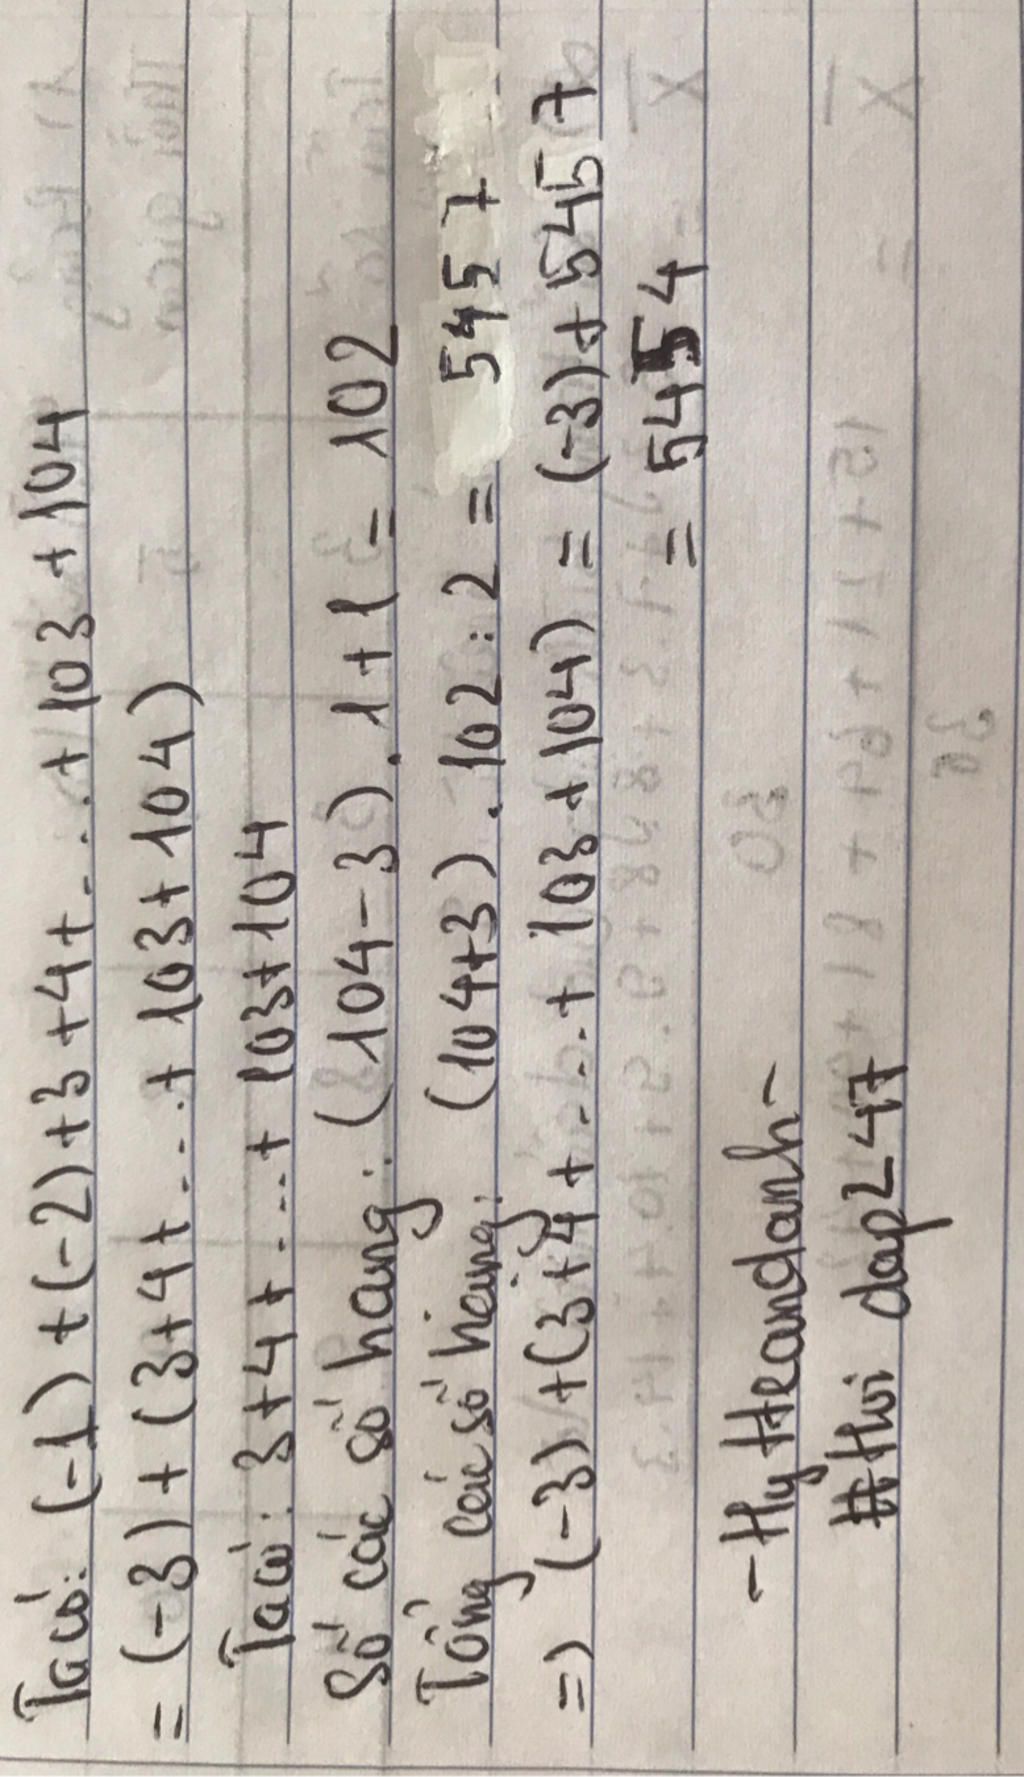 Ta có: (-1) + (-2) + 3 + 4 + .... + 103 + 104
= (-3) + (3 + 4 + .... + 103 + 104)
Ta có: 3 + 4 + .... + 103 + 104
Số các số hạng: (104 - 3) . 1 + 1 = 102
Tổng các số hạng: (104 + 3) . 102 : 2 = 5457
=) (-3) + (3 + 4 + .... + 103 + 104) = (-3) + 5457
= 5454
- HyHeandanh -
# Hoi dap 247